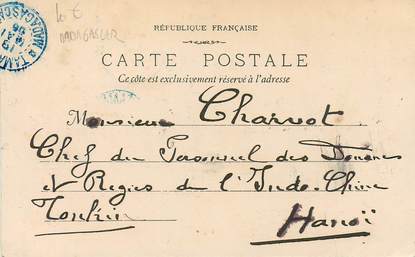 10 €
MADAGASCAR
RÉPUBLIQUE FRANÇAISE
CARTE POSTALE
Ce côté est exclusivement réservé à l'adresse
Monsieur Charvot
Chef du Personnel des Douanes
et Régies de l'Indo-Chine
Tonkin
Hanoï